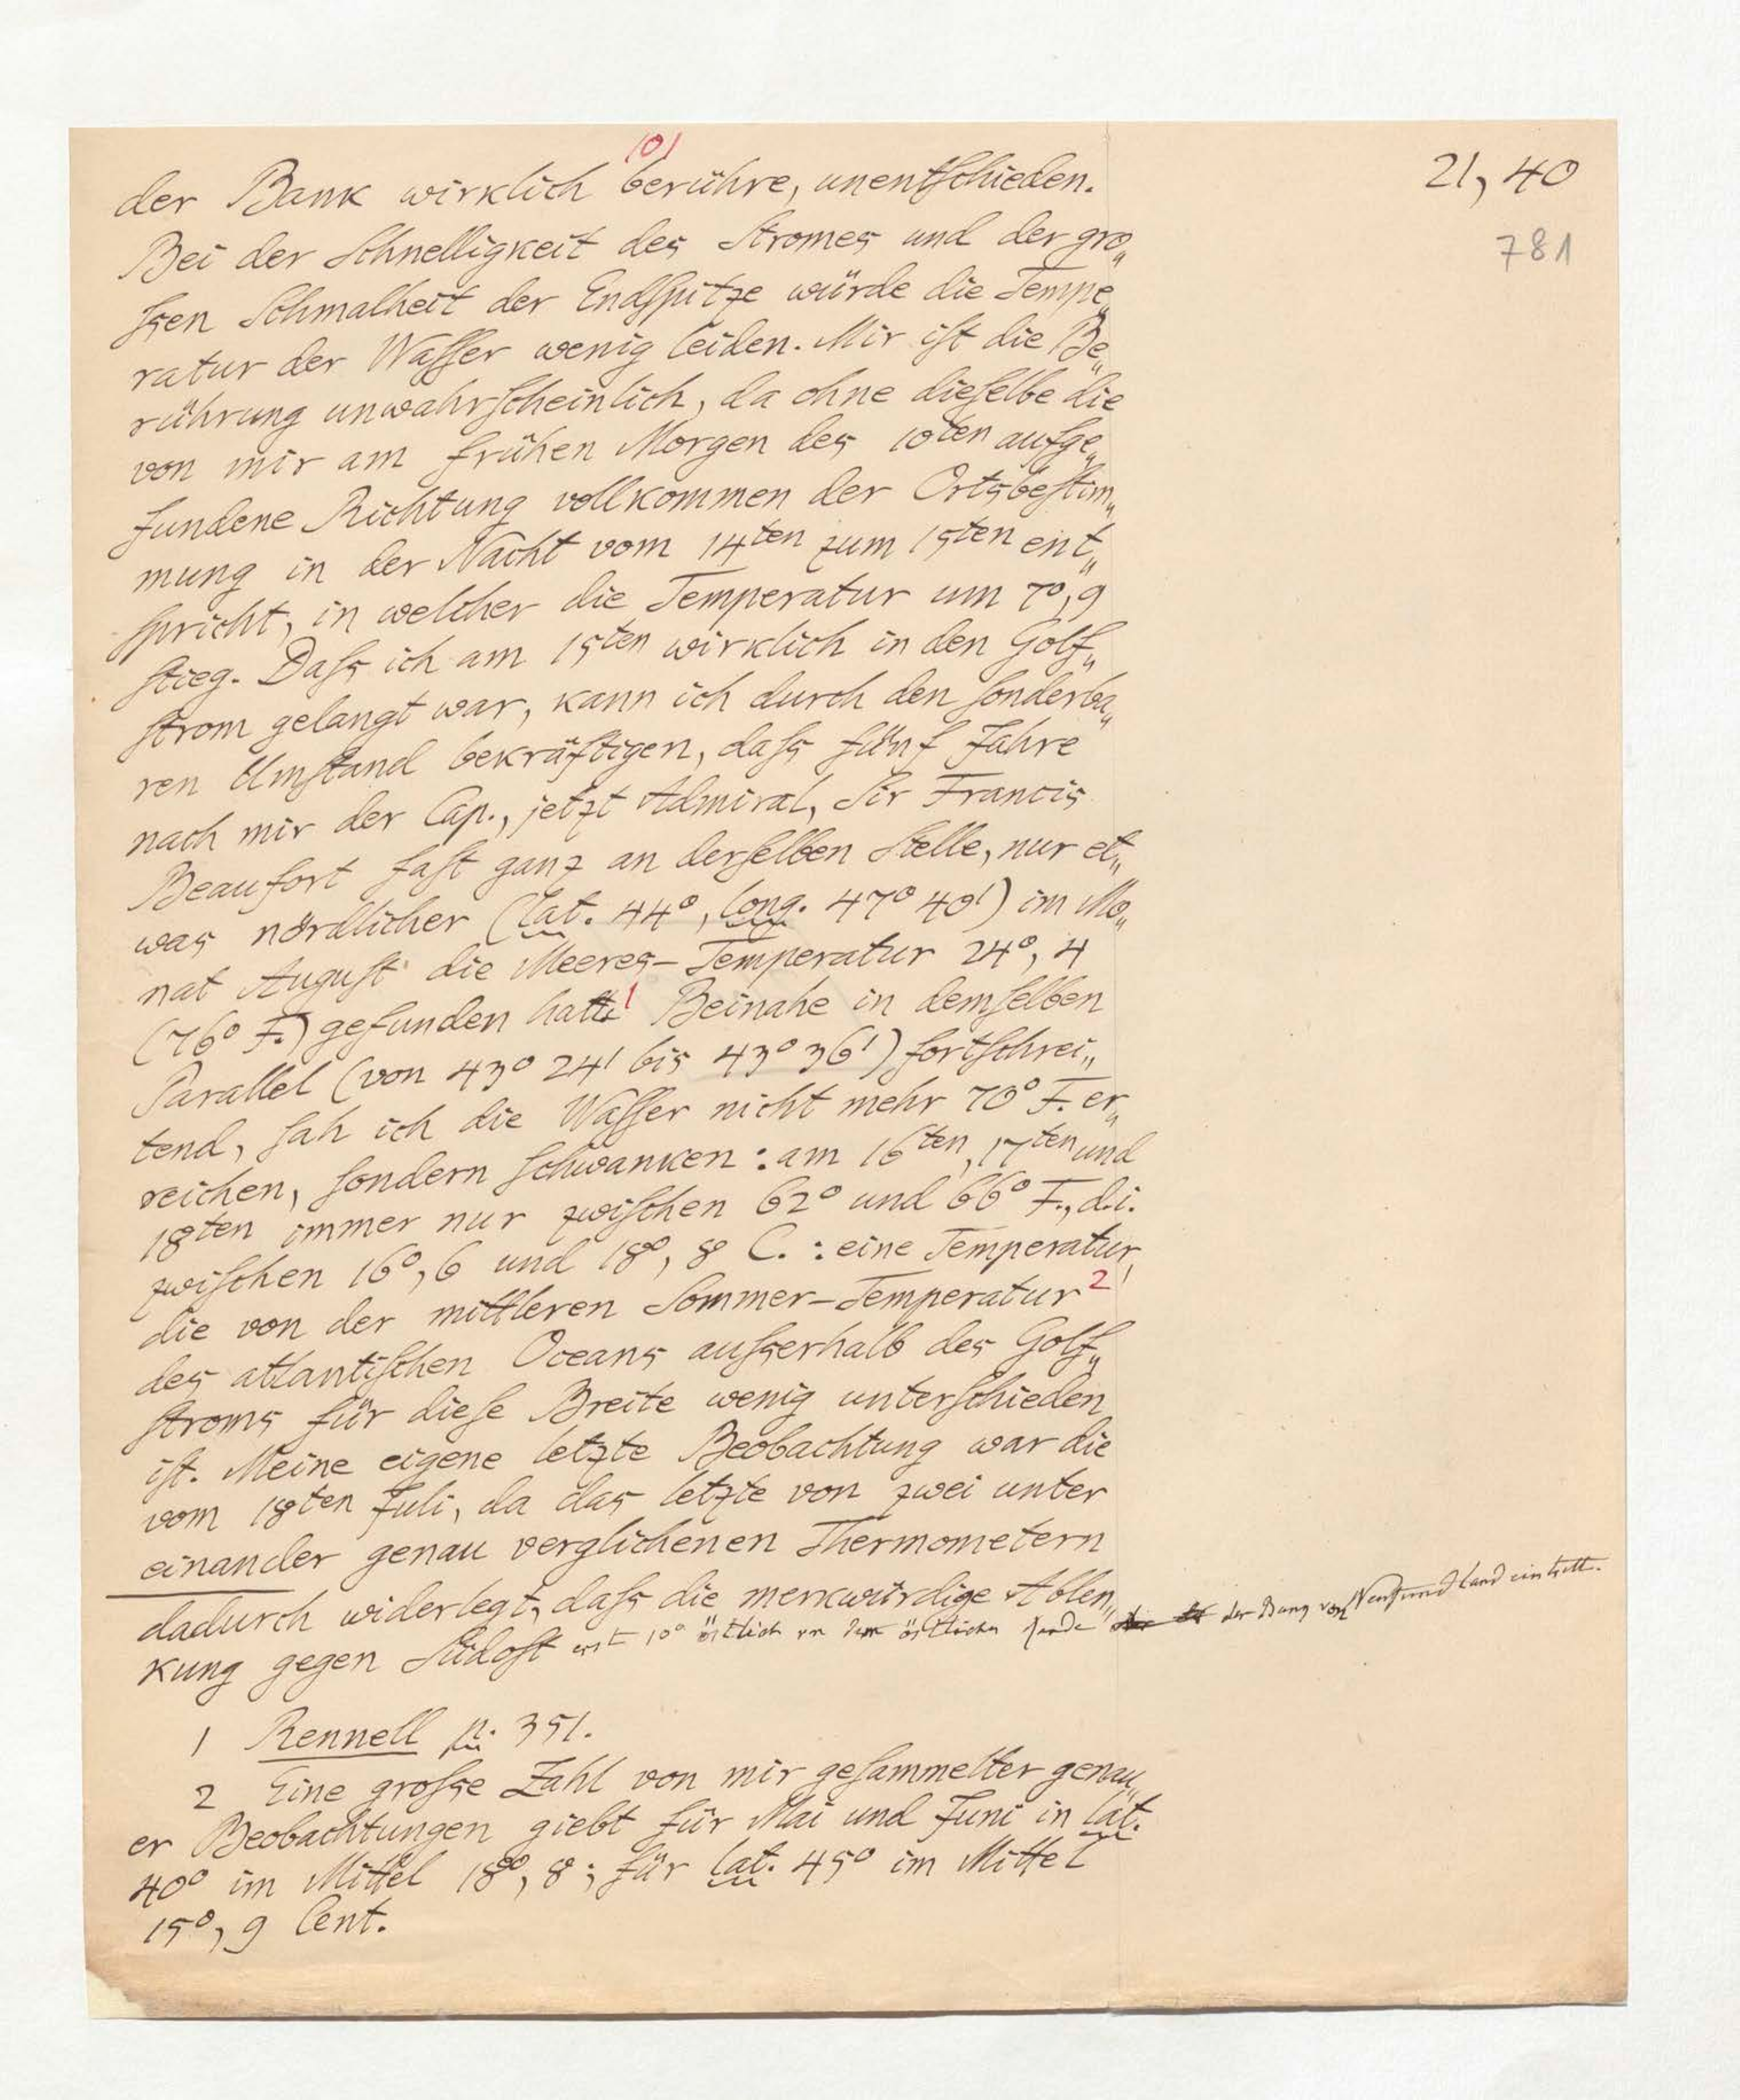 101
21, 40
781
der Bank wirklich berühre, unentschieden.
Bei der Schnelligkeit des Stromes und der gro„
ssen Schmalheit der Endspitze würde die Tempe„
ratur der Wasser wenig leiden. Mir ist die Be„
rührung unwahrscheinlich, da ohne dieselbe die
von mir am frühen Morgen des 10ten aufge„
fundene Richtung vollkommen der Ortsbestim„
mung in der Nacht vom 14ten zum 15ten ent„
spricht, in welcher die Temperatur um 7°,9
stieg. Dass ich am 15ten wirklich in den Golf„
strom gelangt war, kann ich durch den sonderba„
ren Umstand bekräftigen, dass fünf Jahre
nach mir der Cap., jetzt Admiral, Sir Francis
Beaufort fast ganz an derselben Stelle, nur et„
was nördlicher (lat. 44°, long. 47° 40') im Mo„
nat August die Meeres-Temperatur 24°, 4
(76° F.) gefunden hatte 1 Beinahe in demselben
Parallel (von 43° 24' bis 43° 36') fortschrei„
tend, sah ich die Wasser nicht mehr 70° F. er„
reichen, sondern schwanken: am 16ten, 17ten und
18ten immer nur zwischen 62° und 66° F., d. i.
zwischen 16°, 6 und 18°, 8 C.: eine Temperatur,
die von der mittleren Sommer-Temperatur 2
des atlantischen Oceans ausserhalb des Golf„
stroms für diese Breite wenig unterschieden
ist. Meine eigene letzte Beobachtung war die
vom 18ten Juli, da das letzte von zwei unter
einander genau verglichenen Thermometern
dadurch widerlegt, dass die merkwürdige Ablen„
kung gegen Südost erst 10° östlich von dem östlichen Ende der Bang von Neufundland eintritt.
1 Rennell p. 351.
2 Eine grosse Zahl von mir gesammelter genau„
er Beobachtungen giebt für Mai und Juni in lat.
40° im Mittel 18°, 8; für lat. 45° im Mittel
15°, 9 Cent.